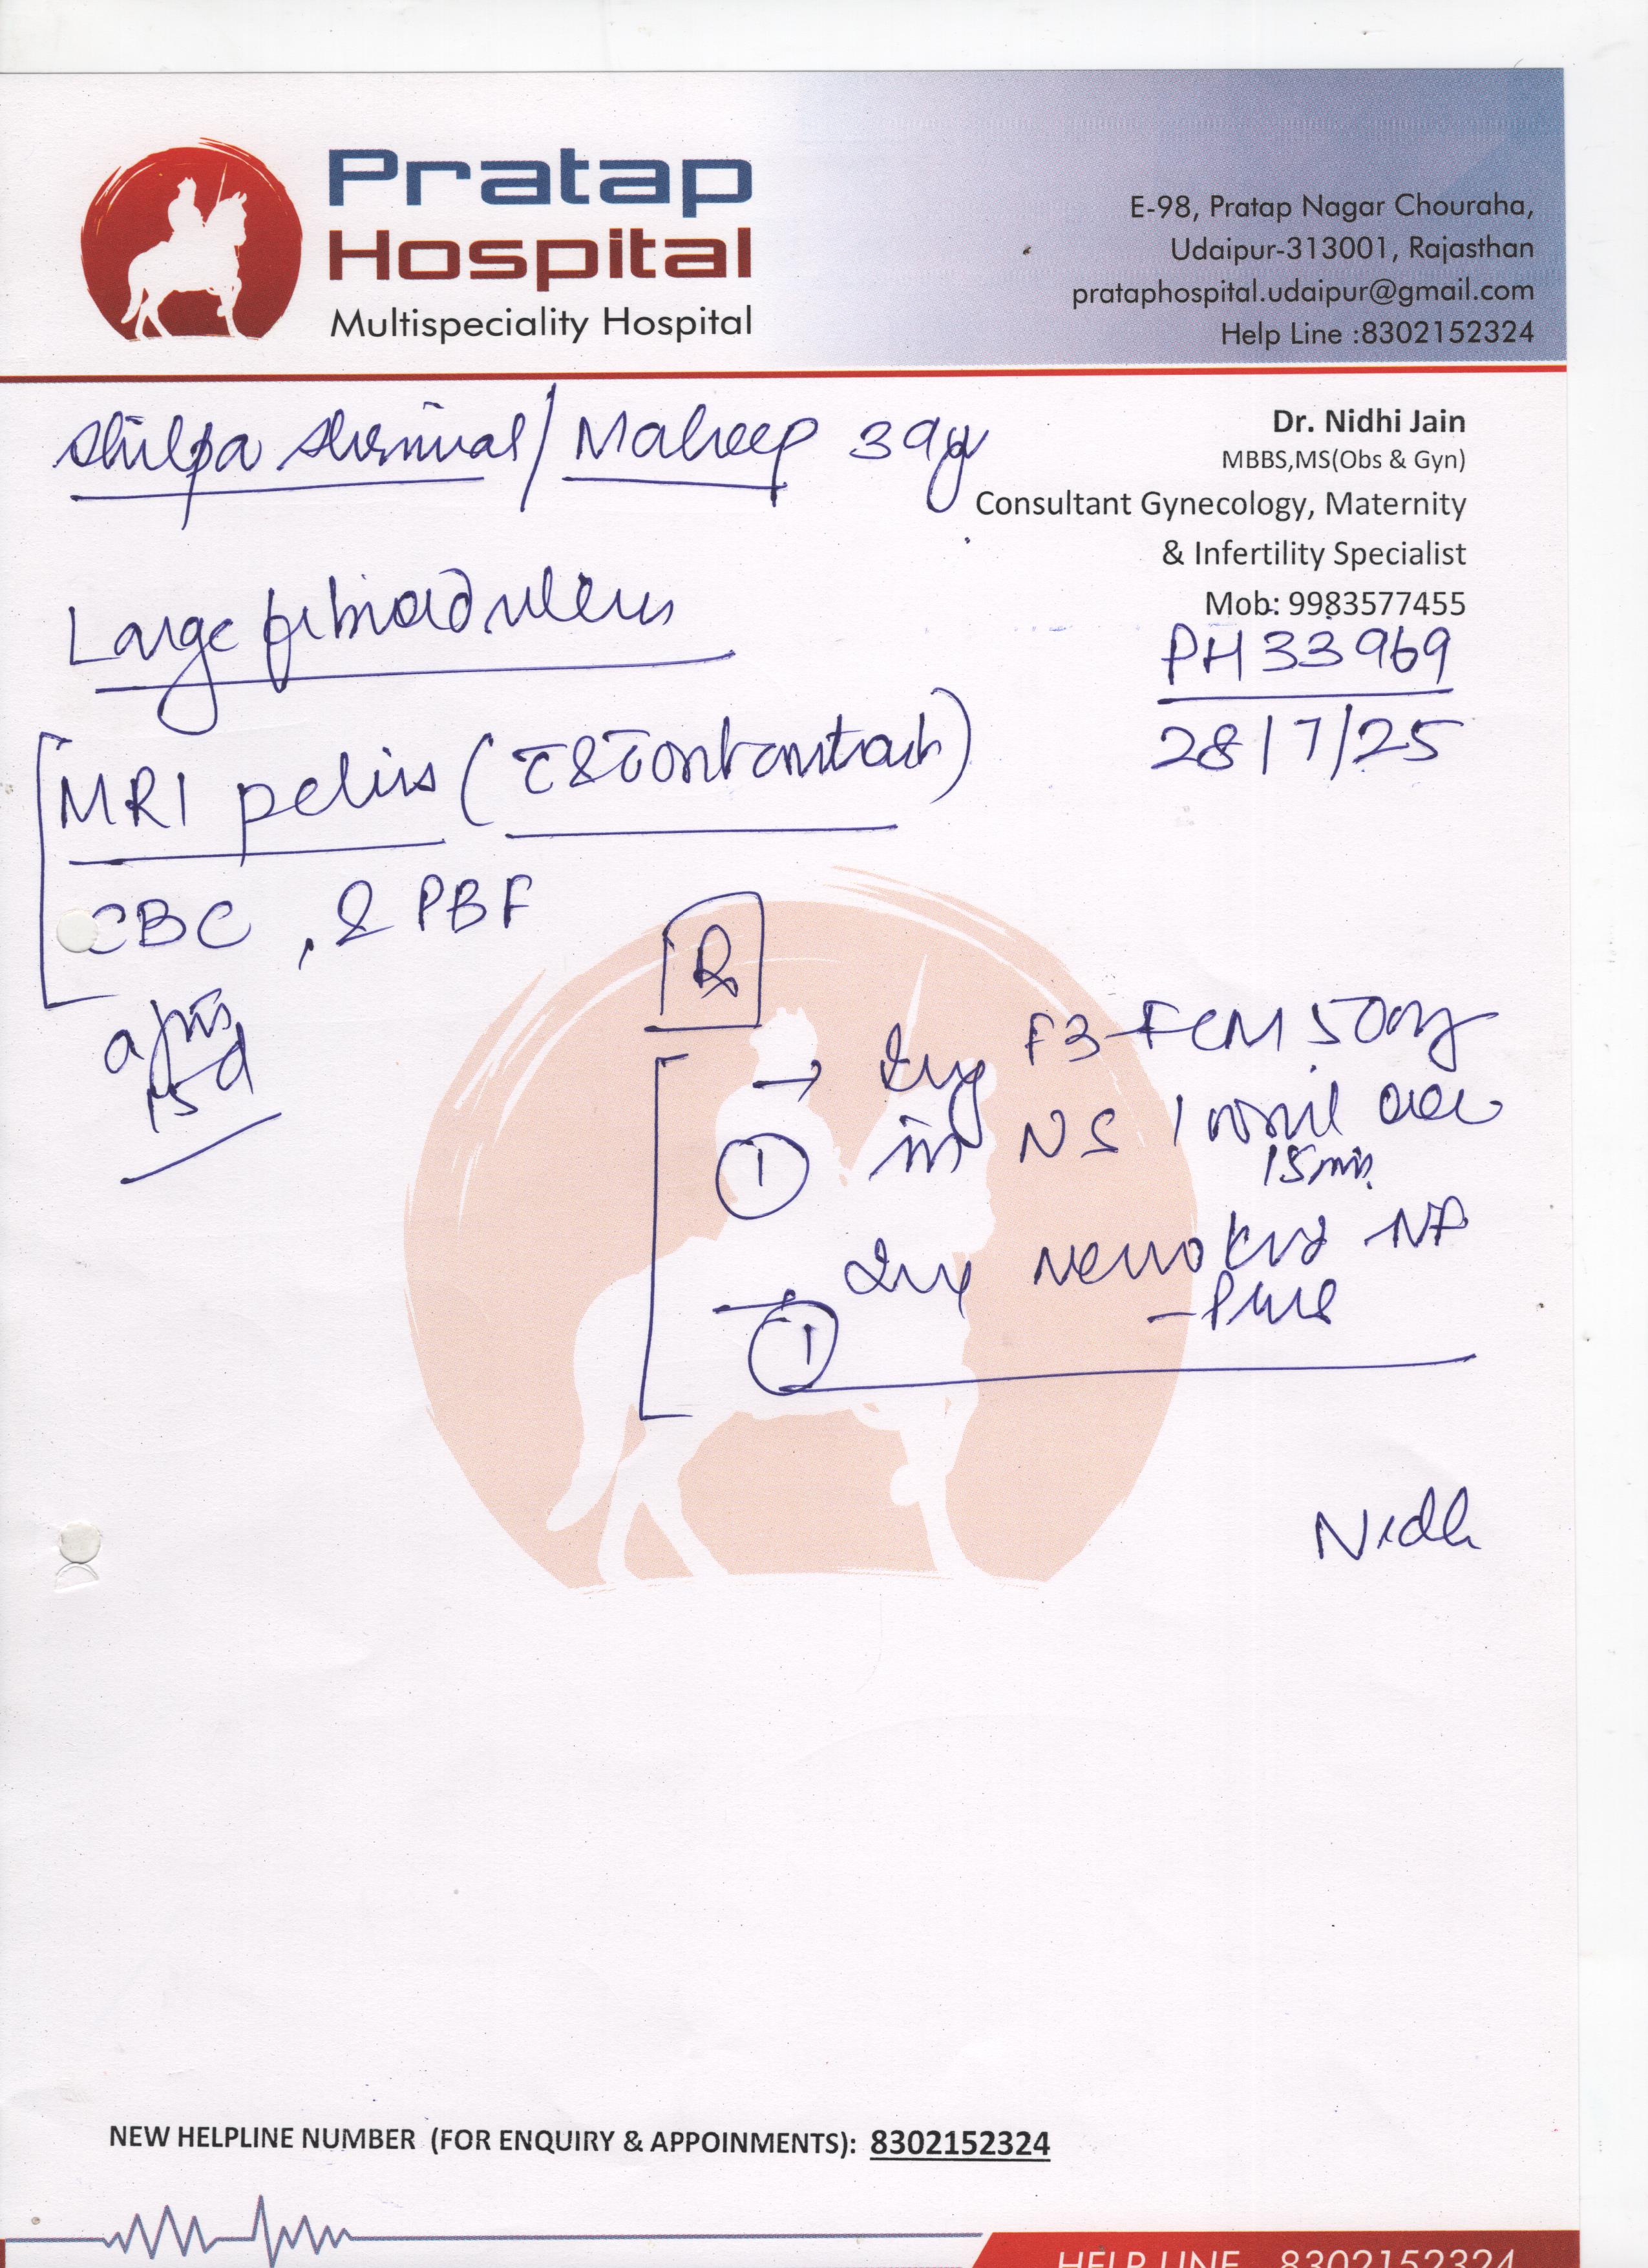 Pratap
Hospital
Multispeciality Hospital
E-98, Pratap Nagar Chouraha,
Udaipur-313001, Rajasthan
prataphospital.udaipur@gmail.com
Help Line :8302152324
Shilpa / Maheep 39y
Dr. Nidhi Jain
MBBS,MS(Obs & Gyn)
Consultant Gynecology, Maternity
& Infertility Specialist
Mob: 9983577455
PH33969
28/7/25
Large fibroid uterus
MRI pelvis ( & contrast)
CBC, & PBF
15d
Rx
→ Inj F3-FCM 500mg
① in NS 100ml over
15min.
→ Inj Neurokind
① -Plus
Nidhi
NEW HELPLINE NUMBER (FOR ENQUIRY & APPOINMENTS): 8302152324
HELP LINE 8302152324